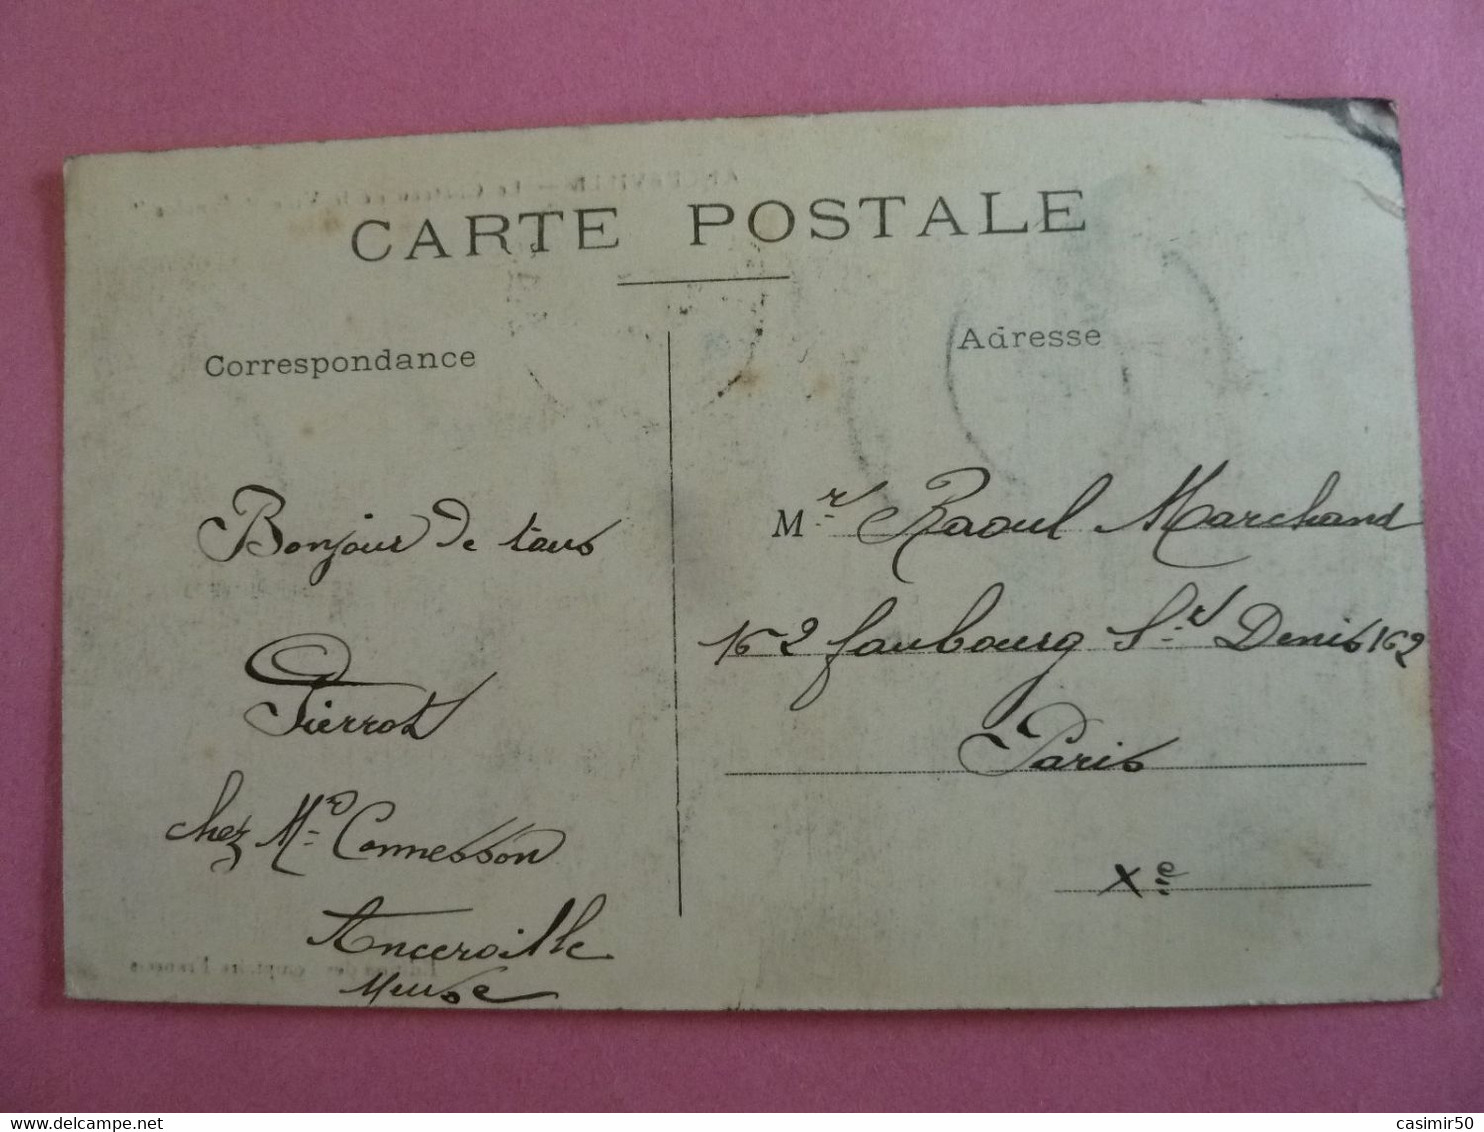 CARTE POSTALE
Correspondance
Adresse
Bonjour de tous
Pierrot
chez Mᵈ Connesson
Ancerville
Meuse
Mʳ Raoul Marchand
162 faubourg Sᵗ Denis 162
Paris
Xᵉ
casimir50